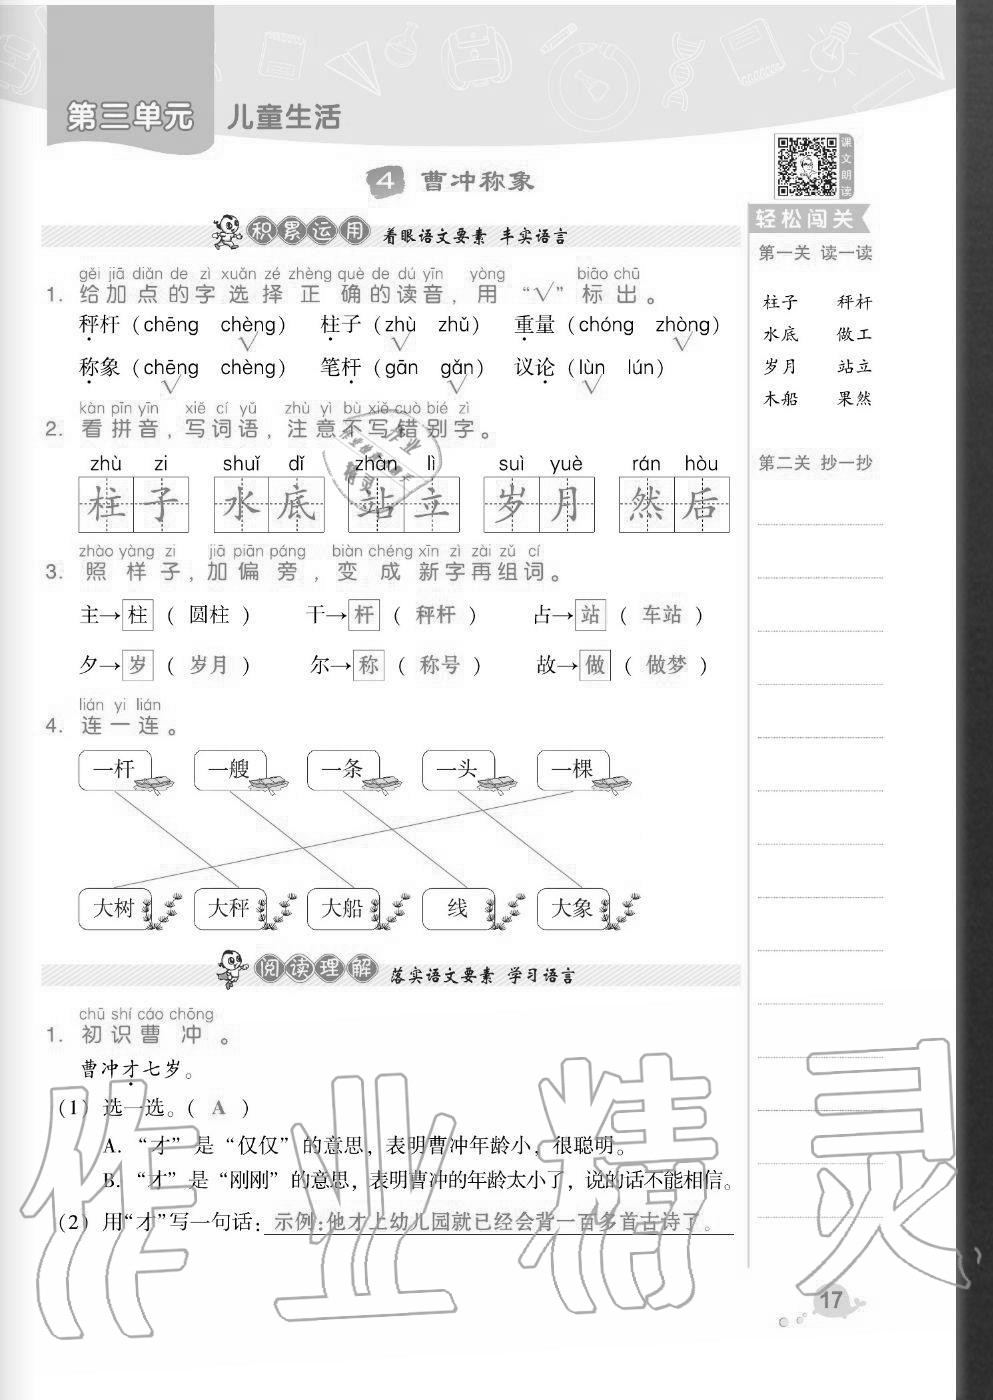 第三单元 儿童生活
4 曹冲称象
课文朗读
积累运用 着眼语文要素 丰实语言
gěi jiā diǎn de zì xuǎn zé zhèng què de dú yīn yòng biāo chū
1. 给加点的字选择正确的读音，用“√”标出。
秤杆（chēng chèng） 柱子（zhù zhǔ） 重量（chóng zhòng）
√ √ √
称象（chēng chèng） 笔杆（gān gǎn） 议论（lùn lún）
√ √ √
kàn pīn yīn xiě cí yǔ zhù yì bù xiě cuò bié zì
2. 看拼音，写词语，注意不写错别字。
zhù zi shuǐ dǐ zhàn lì suì yuè rán hòu
柱子 水底 站立 岁月 然后
zhào yàng zi jiā piān páng biàn chéng xīn zì zài zǔ cí
3. 照样子，加偏旁，变成新字再组词。
主→柱（圆柱） 干→杆（秤杆） 占→站（车站）
夕→岁（岁月） 尔→称（称号） 故→做（做梦）
lián yi lián
4. 连一连。
一杆 一艘 一条 一头 一棵
大树 大秤 大船 线 大象
阅读理解 落实语文要素 学习语言
chū shí cáo chōng
1. 初识曹冲。
曹冲才七岁。
（1）选一选。（ A ）
A. “才”是“仅仅”的意思，表明曹冲年龄小，很聪明。
B. “才”是“刚刚”的意思，表明曹冲的年龄太小了，说的话不能相信。
（2）用“才”写一句话：示例：他才上幼儿园就已经会背一百多首古诗了。
轻松闯关
第一关 读一读
柱子 秤杆
水底 做工
岁月 站立
木船 果然
第二关 抄一抄
17
作业精灵